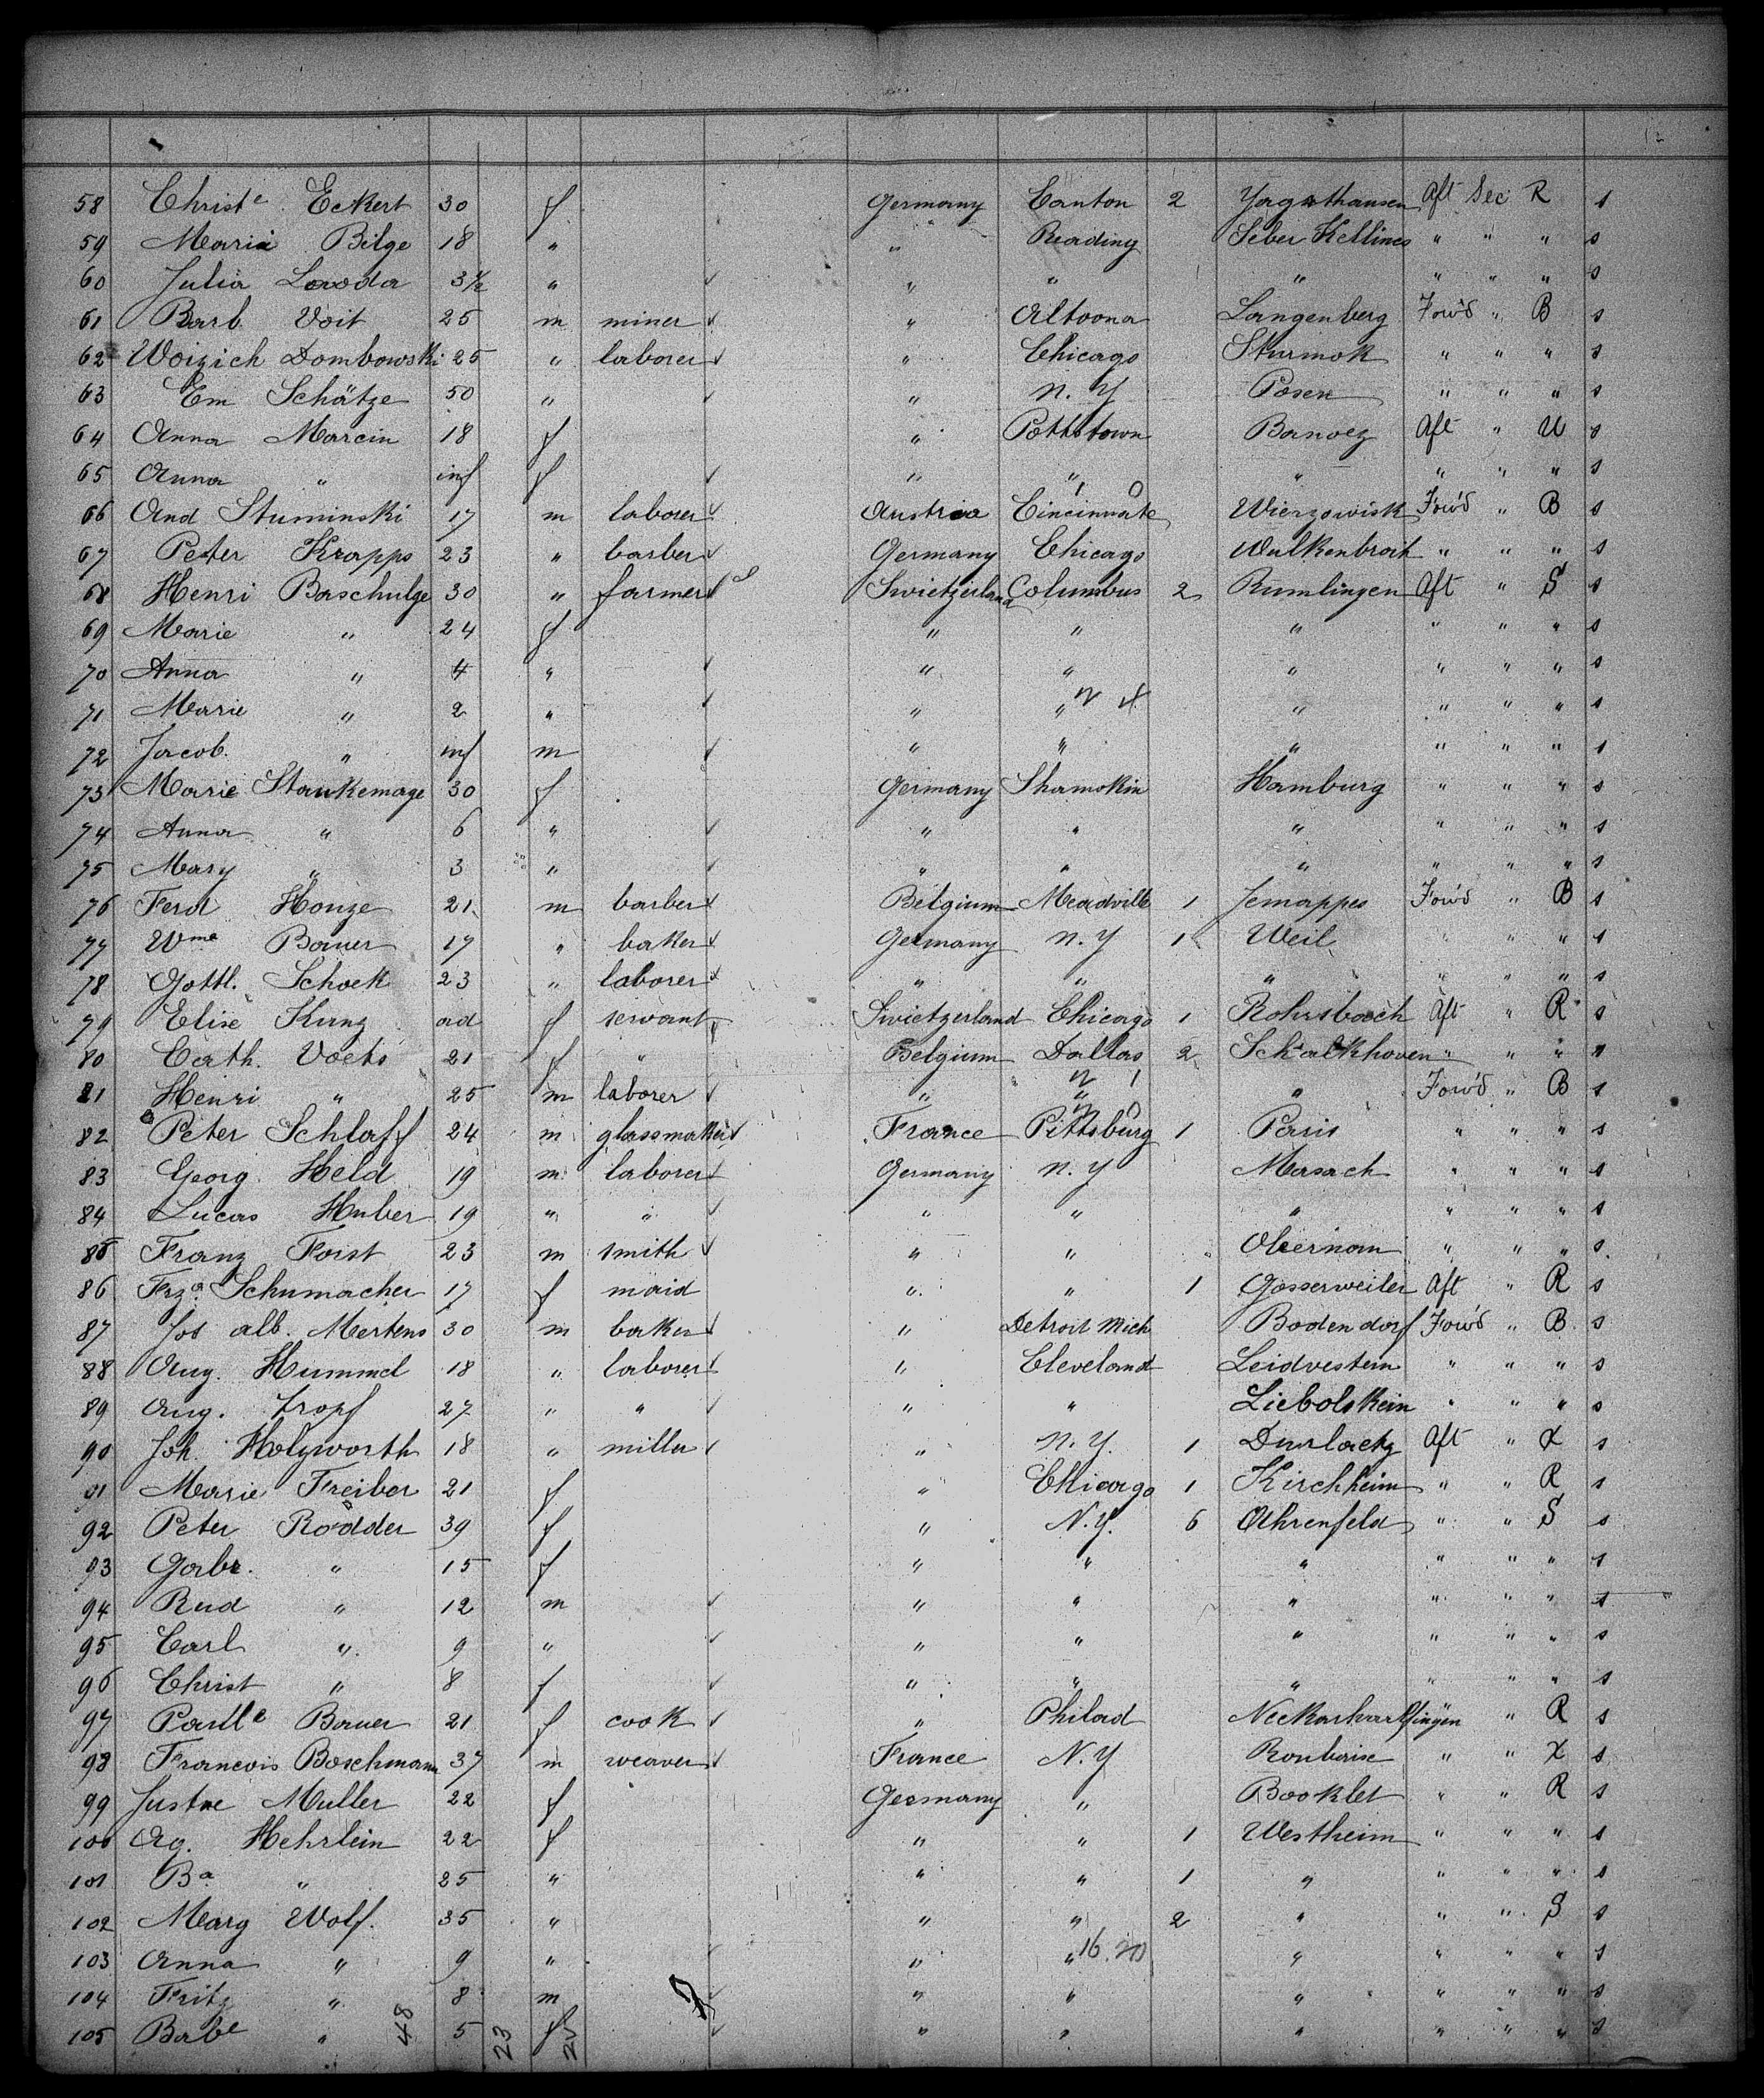 58 Christe Eckert 30 f Germany Canton 2 Yagsthausen Aft Sec R s
59 Maria Bilge 18 " " Reading Seber Kellines " " " s
60 Julia Lawoda 3½ " " " " " " " s
61 Barb. Voit 25 m miner " Altoona Langenberg Fow'd " B s
62 Woizich Dombowski 25 " laborer " Chicago Sturmok " " " s
63 Em Schätze 50 " " N. Y Posen " " " s
64 Anna Marcin 18 f " Pottstown Banvez Aft " U s
65 Anna " inf f " " " " " " s
66 And Stuminski 17 m laborer Austria Cincinnate Wierzowisk Fow'd " B s
67 Peter Krapps 23 " barber Germany Chicago Wulkenbroit " " " s
68 Henri Baschulge 30 " farmer Swietzerland Columbus 2 Rumlingen Aft " S s
69 Marie " 24 f " " " " " " s
70 Anna " 4 " " " " " " " s
71 Marie " 2 " " " " " " " s
72 Jacob. " inf m " " " " " " s
73 Marie Stankemage 30 f Germany Shamokin Hamburg " " " s
74 Anna " 6 " " " " " " " s
75 Mary " 3 " " " " " " " s
76 Ferd Honze 21 m barber Belgium Meadville 1 Jemappes Fow'd " B s
77 Wme Bauer 17 " baker Germany N. Y 1 Weil " " " s
78 Gottl. Schoek 23 " laborer " " " " " " s
79 Elise Kunz ad f servant Swietzerland Chicago 1 Rohrsbach Aft " R s
80 Cath. Voets 21 f " Belgium Dallas 2 Schalkhoven " " " "
81 Henri " 25 m laborer " " " Fow'd " B s
82 Peter Schlaff 24 m glassmaker France Pittsburg 1 Paris " " " s
83 Georg Held 19 m laborer Germany N. Y Masach " " " s
84 Lucas Huber 19 " " " " " " " " s
85 Franz Forst 23 m smith " " Obernam " " " s.
86 Frza. Schumacher 17 f maid " " 1 Gosserweiler Aft " R s
87 Jos alb. Mertens 30 m baker " Detroit Mich Bodendorf Fow'd " B s
88 Aug. Hummel 18 " laborer " Cleveland Leidvestem " " " s
89 Aug. Zropf 27 " " " " Liebolskein " " " s
90 Joh. Holzworth 18 " miller " N. Y. 1 Durlachz Aft " X s
91 Marie Freiber 21 f " Chicago 1 Kirchheim " " R s
92 Peter Rodder 39 f " N. Y. 6 Othrenfeld " " S s
93 Gabr. " 15 f " " " " " " s
94 Rud " 12 m " " " " " " s
95 Carl " 9 " " " " " " " s
96 Christ " 8 f " " " " " " s
97 Paule Bauer 21 f cook " Philad Neckarhartfingen " R s
98 Francois Boschmann 37 m weaver France N. Y Roubaise " " X s
99 Justne Muller 22 f Germany " Booklet " " R s
100 Ag. Hehrlein 22 f " " 1 Westheim " " " s
101 Ba " 25 " " " 1 " " " " s
102 Marg Wolf. 35 " " " 2 " " " S s
103 Anna " 9 " " " 16.20 " " " " s
104 Fritz " 8 m " " " " " " s
105 Babe " 5 f " " " " " " s
48 23 25